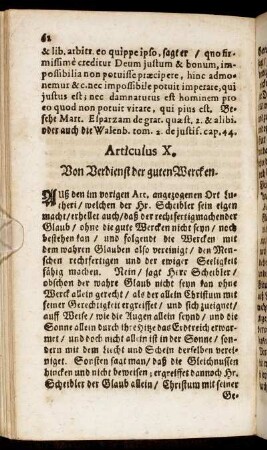 62
& lib. arbitr. eo quippe ipso, sagt er / quo fir-
missimè creditur Deum justum & bonum, im-
possibilia non potuisse præcipere, hinc admo-
nemur & c. nec impossibile potuit imperate, qui
justus est; nec damnaturus est hominem pro
eo quod non potuit vitare, qui pius est. Be-
sehe Mart. Esparzam de grat. quæst. 2. & alibi.
oder auch die Walenb. tom. 2. de justif. cap. 44.
Articulus X.
Von Verdienst der guten Wercken.
Auß den im vorigen Art. angezogenen Ort Lu-
theri / welchen der Hr. Scheibler sein eigen
macht / erhellet auch / daß der rechtfertigmachender
Glaub / ohne die gute Wercken nicht seyn / noch
bestehen kan / und folgentß die Wercken mit
dem wahren Glauben also vereinigt / den Men-
schen rechtfertigen und der ewiger Seeligkeit
fähig machen. Nein / sagt Herr Scheibler /
obschon der wahre Glaub nicht seyn kan ohne
Werck allein gerecht / als der allein Christum mit
seiner Gerechtigkeit ergreiffet / und sich zueignet /
auff Weise / wie die Augen allein seynd / und die
Sonne allein durch ihre Hitze das Erdtreich erwar-
met / und doch nicht allein ist in der Sonne / son-
dern mit dem Liecht und Schein derselben verei-
niget. Sonsten saget man / daß die Gleichnussen
hincken und nicht beweisen; ergreifft dannoch Hr.
Scheibler der Glaub allein / Christum mit seiner
Ge-